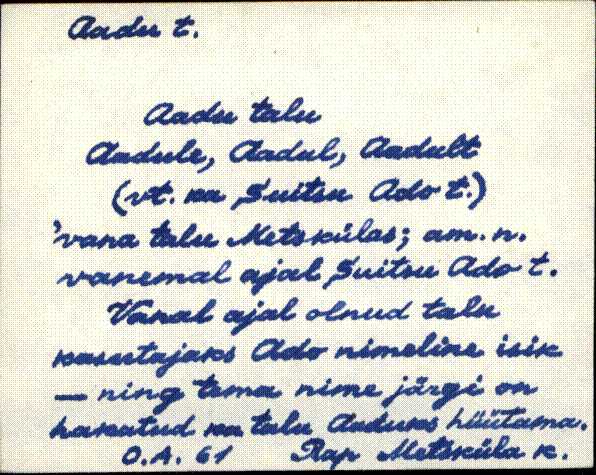 Aadu t.
Aadu talu
Aadule, Aadul, Aadult
(vt. ka Suitsu Ado t.)
'vana talu Metskülas; am. n.
vanemal ajal Suitsu Ado t.
Vanal ajal olnud talu
kasutajaks Ado nimeline isik
— ning tema nime järgi on
hakatud ka talu Aaduks hüütama.
O.A. 61 Rap Metsküla k.